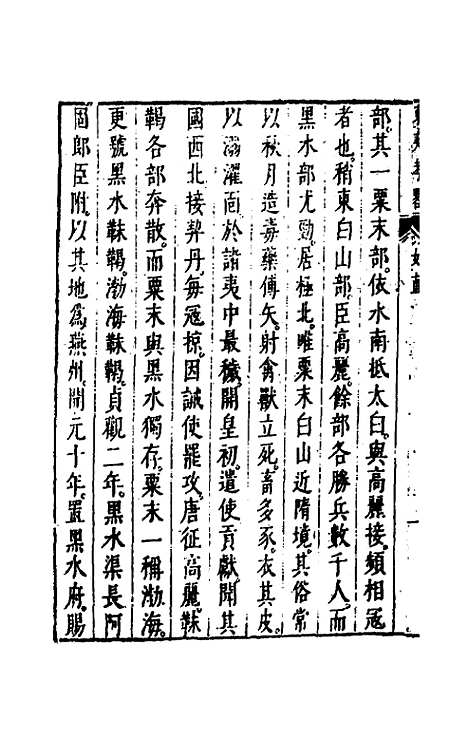 部其一粟末部。依水南抵太白。與高麗接。頻相寇
者也。稍東白山部。臣高麗。餘部各勝兵數千人。而
黑水部尤勁。居極北。唯粟末白山近隋境。其俗常
以秋月造毒藥傅矢。射禽獸立死。畜多豕。衣其皮。
以溺濯面。於諸夷中最穢。開皇初。遣使貢獻。聞其
國西北接契丹。每寇掠。因誡使罷攻。唐征高麗。靺
鞨各部奔散。而粟末與黑水獨存。粟末一稱渤海。
更號黑水靺鞨。渤海靺鞨。貞觀二年。黑水渠長阿
固郎臣附。以其地爲燕州。開元十年。置黑水府。賜